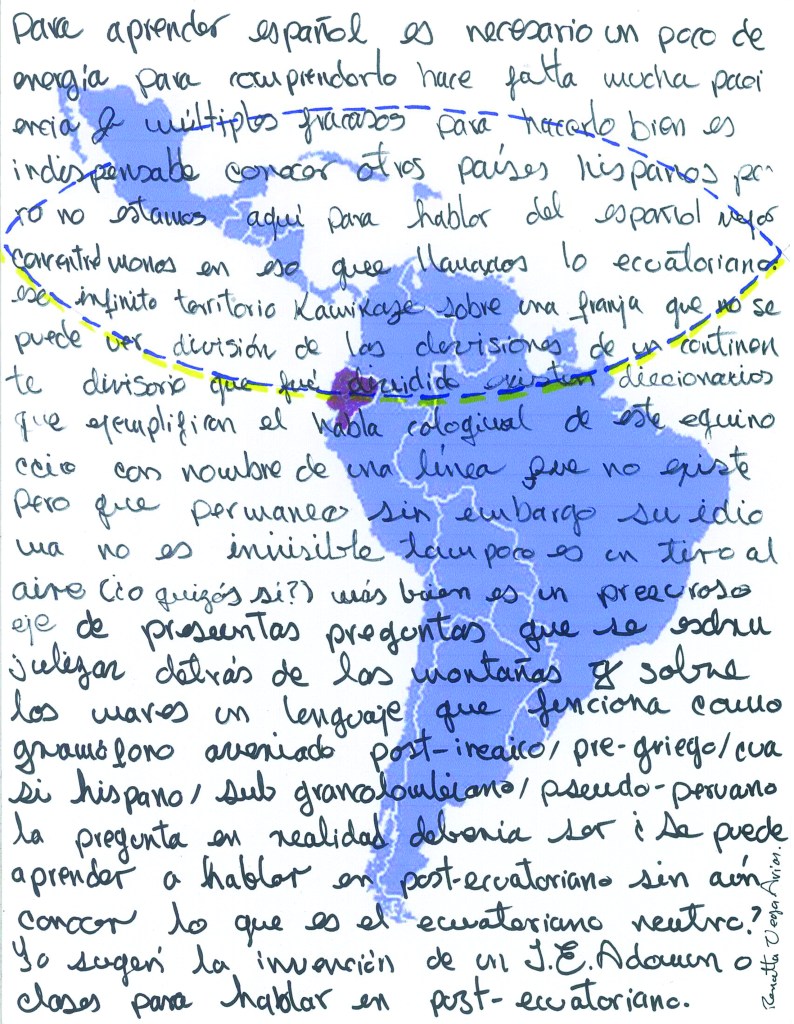 Para aprender español es necesario un poco de
energía para comprenderlo hace falta mucha paci
encia y múltiplos fracasos para hacerlo bien es
indispensable conocer otros países hispanos pe
ro no estamos aquí para hablar del español mejor
concentrémonos en eso que llamados lo ecuatoriano.
ese infinito territorio Kamikaze sobre una franja que no se
puede ver división de las deviziones de un continen
te divisorio que fué dividido existen diccionarios
que ejemplifican el habla cologiual de este equino
ccio con nombre de una línea que no existe
Pero que permanece sin embargo su idio
ma no es invisible tampoco es un tiro al
aire (¿o quizás si?) más bien es un
eje de preguntas que se
detrás de las montañas y sobre
los mares un lenguaje que funciona como
gramófono averiado post-incaico/ pre-griego/cua
si hispano/ sub grancolombiano/ pseudo-peruano
la pregunta en realidad debería ser ¿ Se puede
aprender a hablar en post-ecuatoriano sin aún
conocer lo que es el ecuatoriano neutro?
Yo sugerí la invención de un J.E.Adoum o
clases para hablar en post-ecuatoriano.
Renatta Vega Arias.